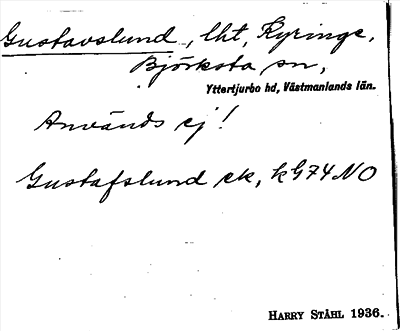 Gustavslund, lht, Kyringe,
Björksta sn,
Yttertjurbo hd, Västmanlands län.
Används ej!
Gustafslund ek, kG74NO
HARRY STÅHL 1936.